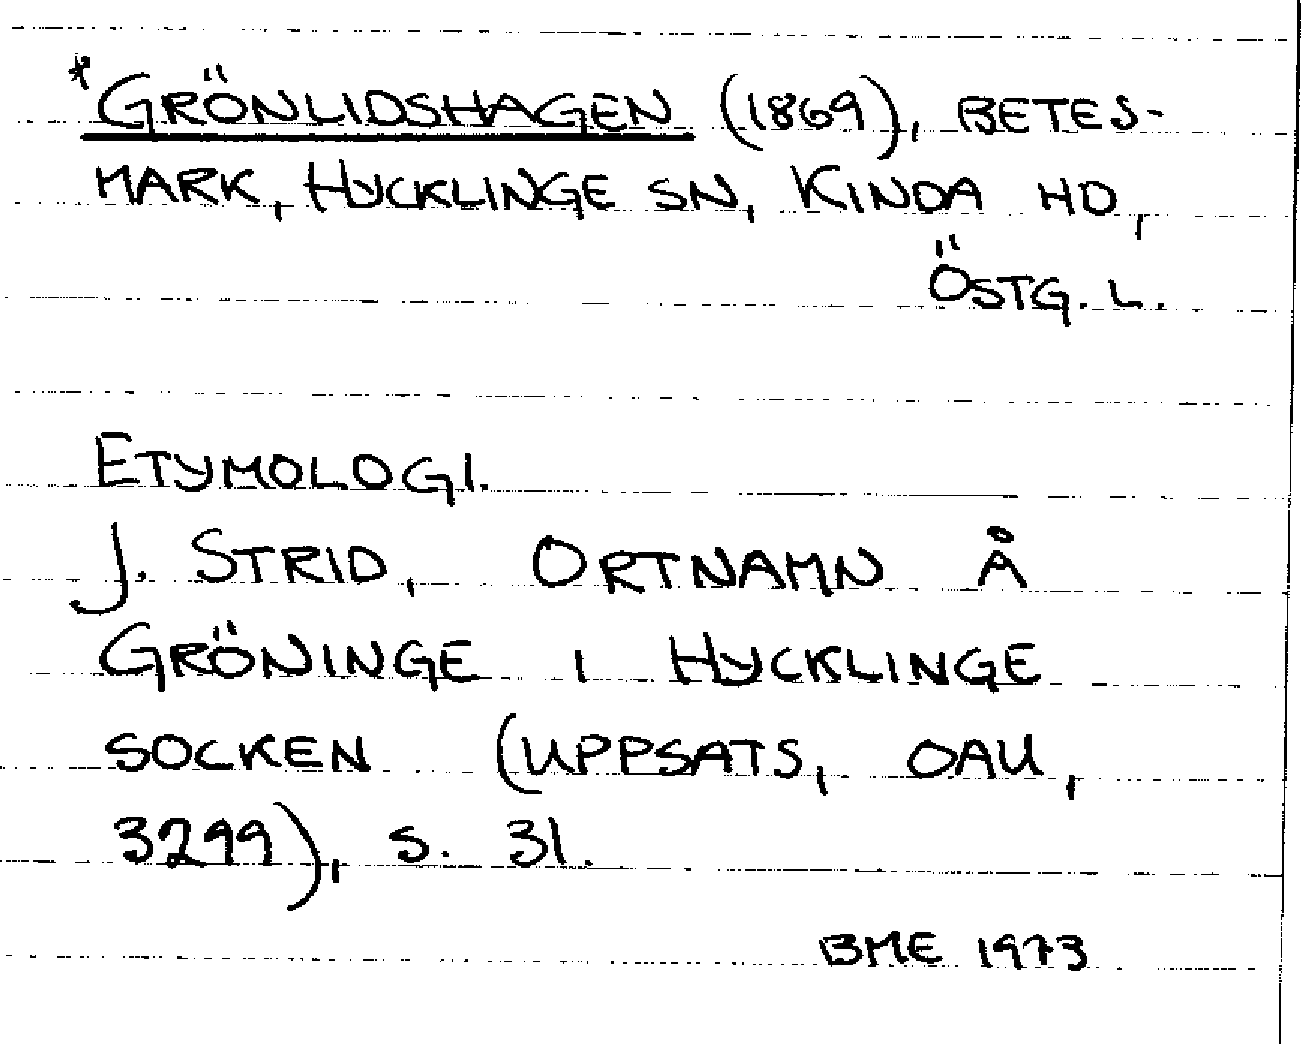 *GRÖNLIDSHAGEN (1869), BETES-
MARK, HYCKLINGE SN, KINDA HD,
ÖSTG. L.
ETYMOLOGI.
J. STRID, ORTNAMN Å
GRÖNINGE I HYCKLINGE
SOCKEN (UPPSATS, OAU,
3299), S. 31.
BME 1973